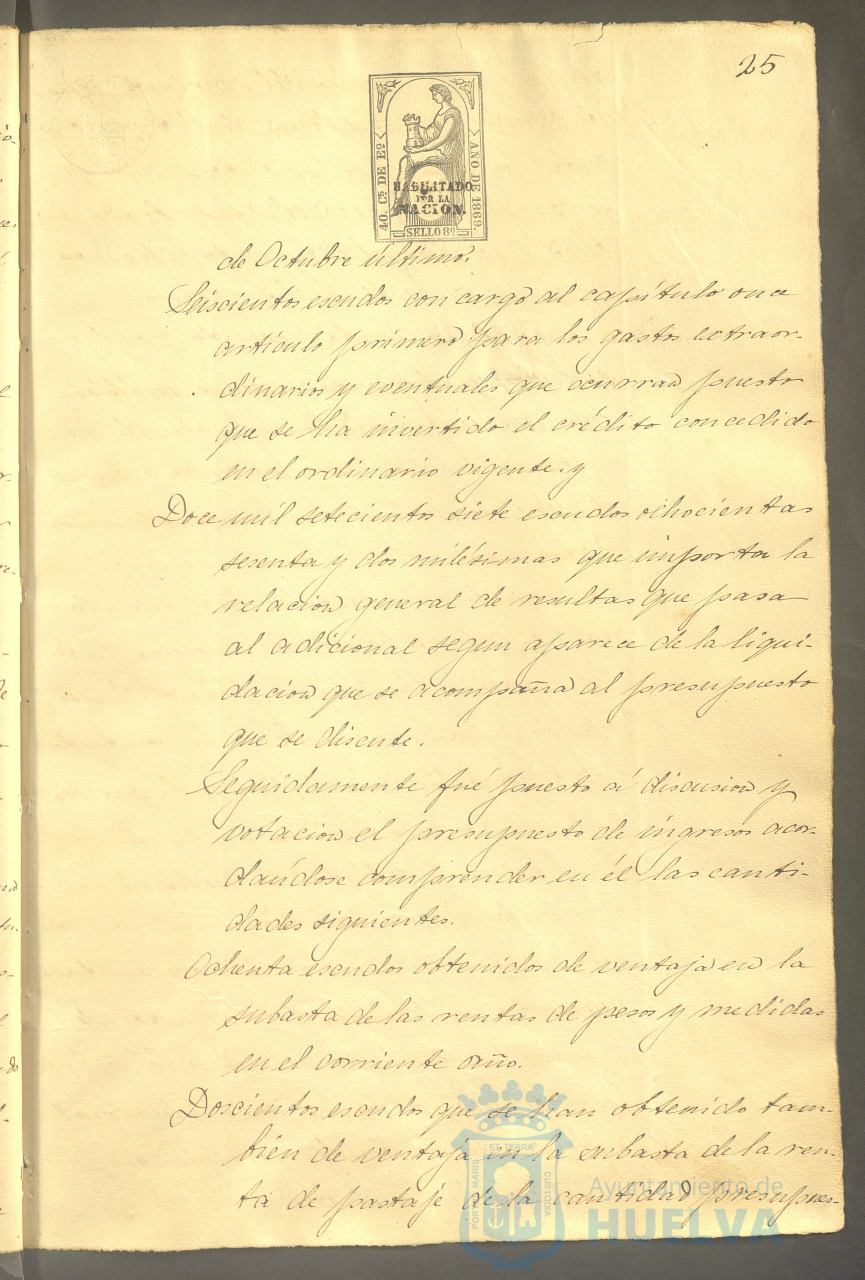 25
40. Cs DE Eo
AÑO DE 1869.
HABILITADO
POR LA
NACION.
SELLO 8º
de Octubre último.
Seiscientos escudos con cargo al capítulo once
artículo primero para los gastos extraor-
dinarios y eventuales que ocurran puesto
que se ha invertido el crédito concedido
en el ordinario vigente. y
Doce mil setecientos siete escudos ochocientas
sesenta y dos milésimas que importa la
relacion general de resultas que pasa
al adicional segun aparece de la liqui-
dacion que se acompaña al presupuesto
que se discute.
Seguidamente fué puesto á discusion y
votacion el presupuesto de ingresos acor-
dandose comprender en él las canti-
dades siguientes.
Ochenta escudos obtenidos de ventaja en la
subasta de las rentas de pesos y medidas
en el corriente año.
Doscientos escudos que se han obtenido tam-
bien de ventaja en la subasta de la ren-
ta de pastaje de la cantidad presupues-
PORTUS MARIS
ET TERRÆ
CUSTODIA
Ayuntamiento de
HUELVA